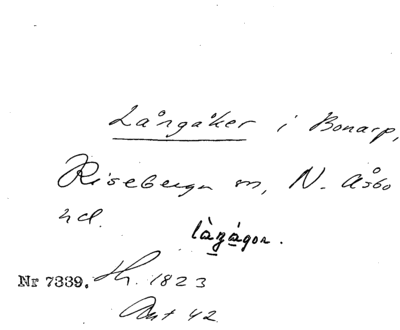 Långåker i Bonarp,
Riseberga sn, N. Åsbo
hd.
làngágor.
Nr 7339. Sk. 1823
Ant 42